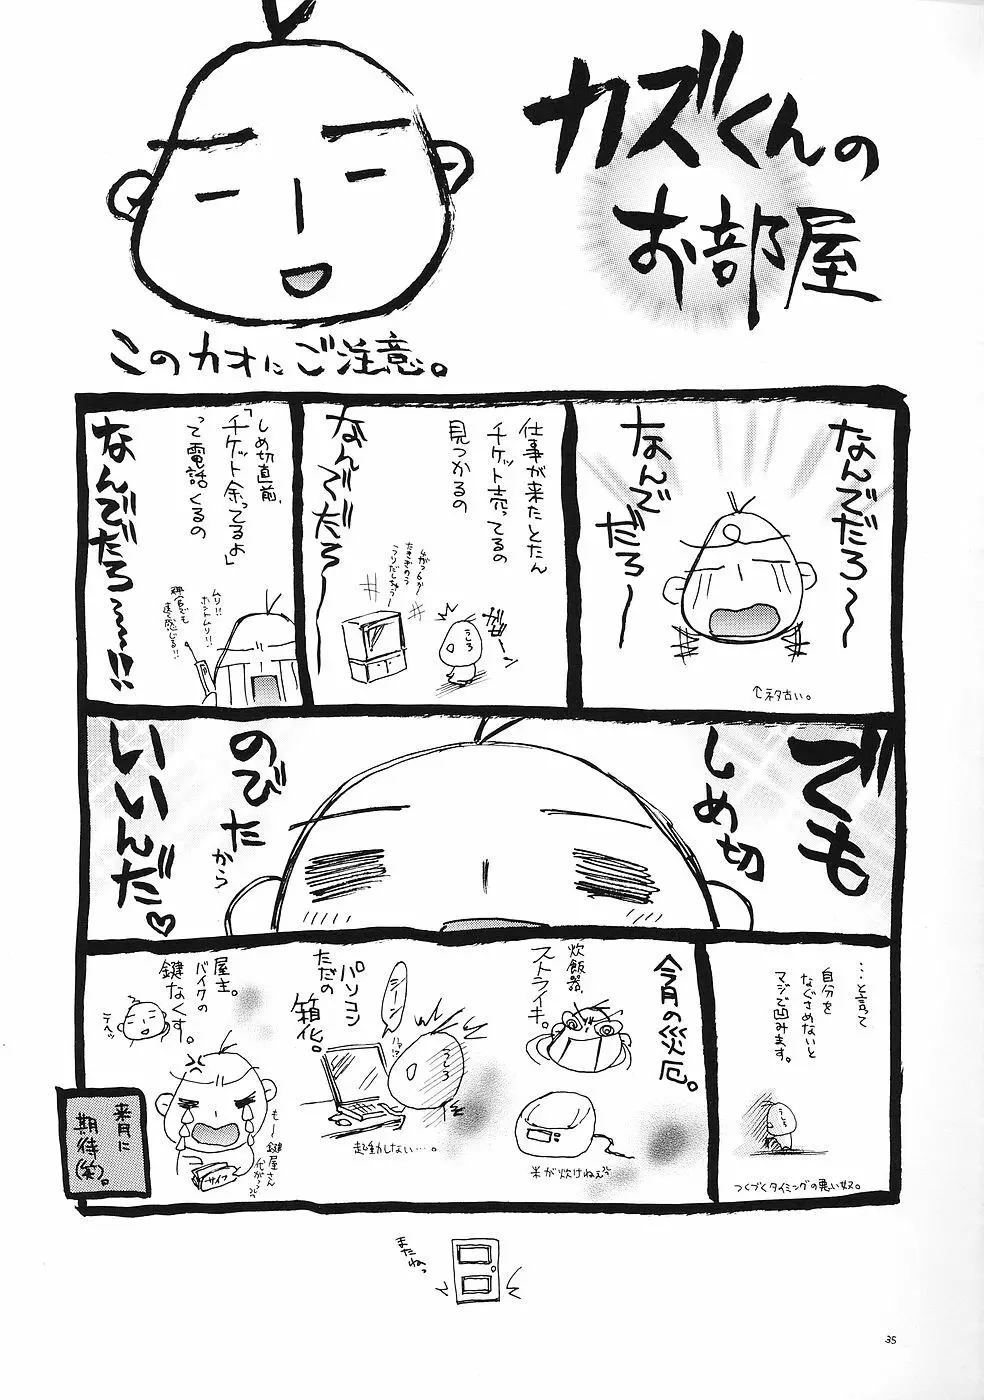 カズくんの
お部屋
このカオにご注意。
なんでだろ〜〜
なんで
だろ〜
↑ネタ古い。
仕事が来たとたん
チケット売ってるの
見つかるの
なんでだろ〜
うしろ
しめ切直前、
「チケット余ってるよ」
って電話くるの
なんでだろ〜〜!!
ムリ!!
ホントムリ!!
でも
しめ切
のびた
から
いいんだ♡
…と言って
自分を
なぐさめないと
マジで凹みます。
つくづくタイミングの悪い奴。
今月の災厄。
炊飯器、
ストライキ。
米が炊けねぇ
パソコン
ただの
箱化。
シーン
うしろ
起動しない…。
屋主。
バイクの
鍵なくす。
も〜鍵屋さん
サイフ
来月に
期待(笑)。
またねっ
35